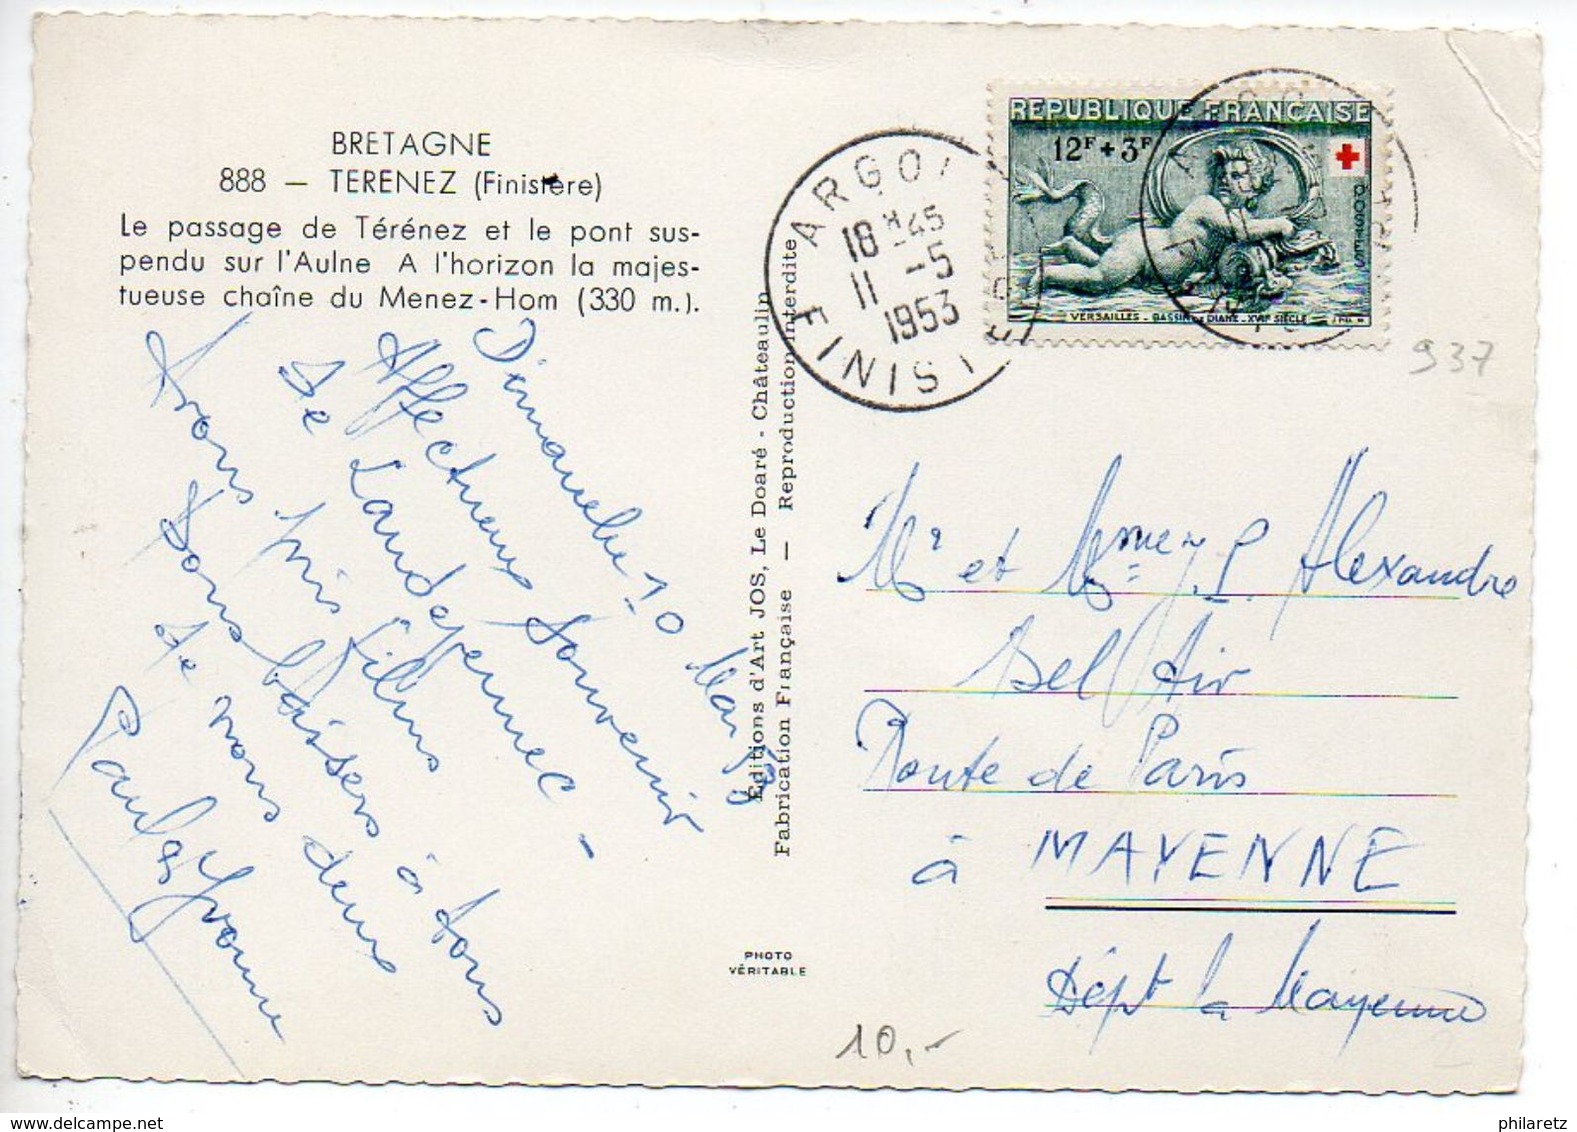 BRETAGNE
888 — TERENEZ (Finistère)
Le passage de Térénez et le pont sus-
pendu sur l'Aulne A l'horizon la majes-
tueuse chaîne du Menez-Hom (330 m.).
Dimanche 10 Mai 53
Affectueux Souvenir
de Landévennec -
Avons pris films
Bons baisers à tous
de nous deux
Paul & Yvonne
Editions d'Art JOS, Le Doaré - Châteaulin
Fabrication Française — Reproduction Interdite
PHOTO
VÉRITABLE
ARGOL
18 H 45
11 -5
1953
FINISTERE
REPUBLIQUE FRANÇAISE
12F + 3F
POSTES
VERSAILLES - BASSIN DE DIANE - XVIIe SIÈCLE
937
Mr et Mme J. P. Alexandre
Bel Air
Route de Paris
à MAYENNE
Dépt la Mayenne
10,-
philaretz